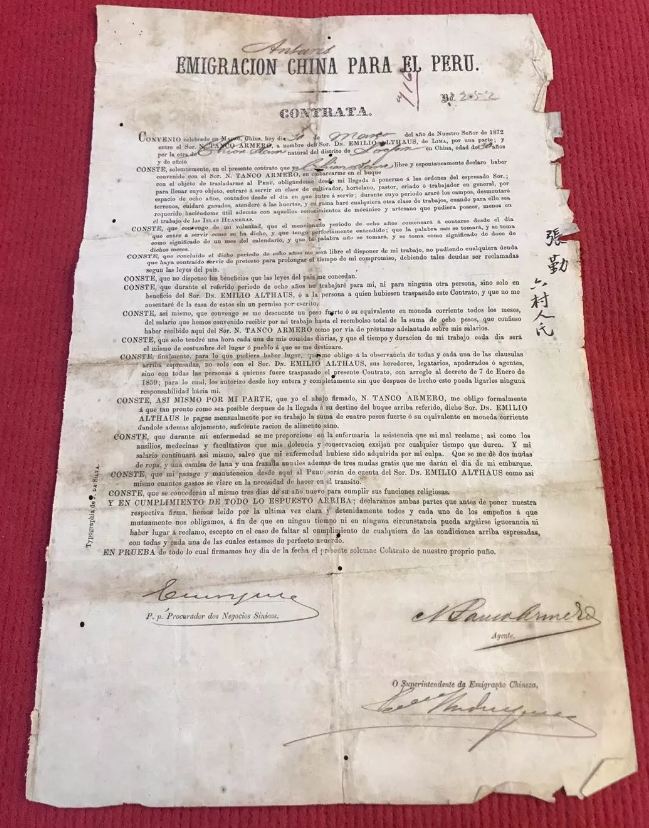 EMIGRACION CHINA PARA EL PERU.
CONTRATA.
CONVENIO celebrado en Macao, China, hoy dia de Marzo del año de Nuestro Señor de 1872
entre el Sor. N. TANCO ARMERO, a nombre del Sor. Dn. EMILIO ALTHAUS, de Lima, por una parte; y
por la otra de natural del distrito de en China, edad de años
y de oficio
CONSTE, solemnemente, en el presente contrato que yo libre y espontaneamente declaro haber
convenido con el Sor. N. TANCO ARMERO, en embarcarme en el buque
con el objeto de trasladarme al Peru, obligandome desde mi llegada á ponerme á las ordenes del espresado Sor.;
para llenar cuyo objeto, entraré á servir en clase de cultivador, hortelano, pastor, criado ó trabajador en general, por
espacio de ocho años, contados desde el dia en que entre á servir; durante cuyo periodo araré los campos, desmontaré
terrenos, cuidaré ganados, atenderé a las huertas, y en suma haré cualquiera otra clase de trabajos, cuando para ello sea
requerido haciendome útil ademas con aquellos conocimientos de mecánico y artesano que pudiera poseer, menos en
el trabajo de las Islas Huaneras.
CONSTE, que convengo de mi voluntad, que el mencionado periodo de ocho años comenzará á contarse desde el dia
que entre a servir como se ha dicho, y que tengo perfectamente entendido; que la palabra mes se tomará, y se toma
como significado de un mes del calendario, y que la palabra año se tomará, y se toma como significado de doce de
dichos meses.
CONSTE, que concluido el dicho periodo de ocho años me será libre el disponer de mi trabajo, no pudiendo cualquiera deuda
que haya contraido servir de pretesto para prolongar el tiempo de mi compromiso, debiendo tales deudas ser reclamadas
segun las leyes del pais.
CONSTE, que no dispenso los beneficios que las leyes del pais me concedan.
CONSTE, que durante el referido periodo de ocho años no trabajaré para mi, ni para ninguna otra persona, sino solo en
beneficio del Sor. Dn. EMILIO ALTHAUS, ó a la persona a quien hubiesen traspasado este Contrato, y que no me
ausentaré de la casa de estos sin un permiso por escrito.
CONSTE, asi mismo, que convengo se me descuente un peso fuerte ó su equivalente en moneda corriente todos los meses,
del salario que hemos convenido recibir por mi trabajo hasta el reembolso total de la suma de ocho pesos, que confieso
haber recibido aqui del Sor. N. TANCO ARMERO como por via de préstamo adelantado sobre mis salarios.
CONSTE, que solo tendré una hora cada una de mis comidas diarias, y que el tiempo y duracion de mi trabajo cada dia será
el mismo de costumbre del lugar ó pueblo á que se me destinare.
CONSTE, finalmente, para lo que pudiera haber lugar, que me obligo a la observancia de todas y cada una de las clausulas
arriba espresadas, no solo con el Sor. Dn. EMILIO ALTHAUS, sus herederos, legatarios, apoderados o agentes,
sino con todas las personas á quienes fuere traspasado el presente Contrato, con arreglo al decreto de 7 de Enero de
1859; para lo cual, los autorizo desde hoy entera y completamente sin que despues de hecho esto pueda ligarles ninguna
responsabilidad hácia mi.
CONSTE, ASI MISMO POR MI PARTE, que yo el abajo firmado, N. TANCO ARMERO, me obligo formalmente
á que tan pronto como sea posible despues de la llegada á su destino del buque arriba referido, dicho Sor. Dn. EMILIO
ALTHAUS le pague mensualmente por su trabajo la suma de cuatro pesos fuerte ó su equivalente en moneda corriente
dandole ademas alojamiento, suficiente racion de alimento sino.
CONSTE, que durante mi enfermedad se me proporcione en la enfermaria la asistencia que mi mal reclame; asi como los
ausilios, medecinas y facultativos que mis dolencia y conservacion exijan por cualquier tiempo que duren. Y mi
salario continuará asi mismo, salvo que mi enfermedad hubiese sido adquirida por mi culpa. Que se me dé dos mudas
de ropa, y una camisa de lana y una frazada anuales ademas de tres mudas gratis que me darán el dia de mi embarque.
CONSTE, que mi pasage y manutencion desde aqui al Peru serán de cuenta del Sor. EMILIO ALTHAUS como asi
mismo cuantos gastos se viere en la necesidad de hacer en el transito.
CONSTE, que se concederan al mismo tres dias de su año nuevo para cumplir sus funciones religiosas.
Y EN CUMPLIMIENTO DE TODO LO ESPUESTO ARRIBA; declaramos ambas partes que antes de poner nuestra
respectiva firma, hemos leido por la ultima vez clara y detenidamente todos y cada uno de los empeños á que
mutuamente nos obligamos, á fin de que en ningun tiempo ni en ninguna circunstancia pueda argüirse ignorancia ni
haber lugar á reclamo, escepto en el caso de faltar al cumplimiento de cualquiera de las condiciones arriba espresadas,
con todas y cada una de las cuales estamos de perfecto acuerdo.
EN PRUEBA de todo lo cual firmamos hoy dia de la fecha el presente solemne Contrato de nuestro proprio puño.
張勤
六村人氏
Typographia de
P. p. Procurador dos Negocios Sinicos.
N Tanco Armero
Agente.
O Superintendente da Emigração Chineza,